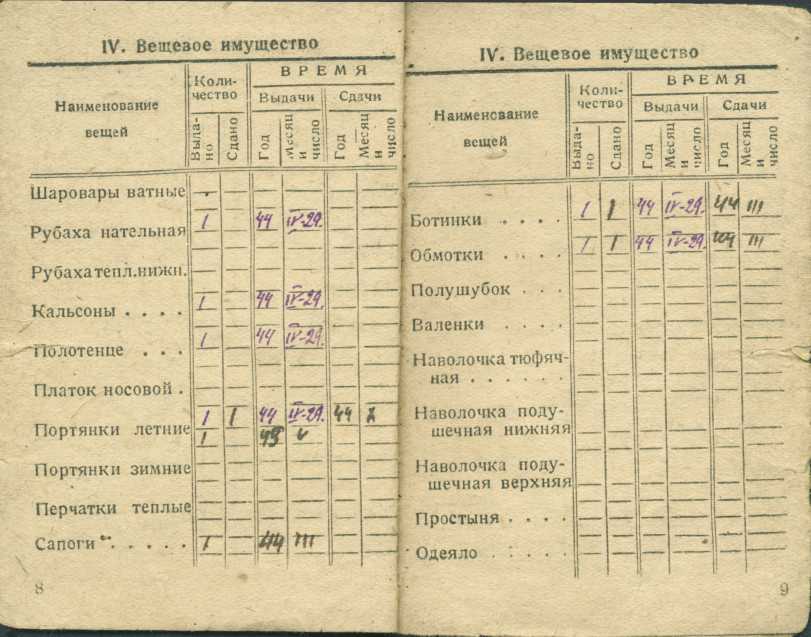 IV. Вещевое имущество
Наименование вещей
Коли-
чество
ВРЕМЯ
Выдачи
Сдачи
Выда-
но
Сдано
Год
Месяц
и
число
Год
Месяц
и
число
Шаровары ватные
Рубаха нательная 1 44 IV-29.
Рубаха тепл. нижн.
Кальсоны . . . . 1 44 IV-29.
Полотенце . . . 1 44 IV-29.
Платок носовой .
Портянки летние 1 1 44 IV-29. 44
1 45 V
Портянки зимние
Перчатки теплые
Сапоги . . . . . 1 44 III
8
IV. Вещевое имущество
Наименование
вещей
Коли-
чество
ВРЕМЯ
Выдачи
Сдачи
Выда-
но
Сдано
Год
Месяц
и
число
Год
Месяц
и
число
Ботинки . . . . 1 1 44 IV-29. 44 III
Обмотки . . . . 1 1 44 IV-29. 44 III
Полушубок . . .
Валенки . . . .
Наволочка тюфяч-
ная . . . . . .
Наволочка поду-
шечная нижняя
Наволочка поду-
шечная верхняя
Простыня . . . .
Одеяло . . . . .
9